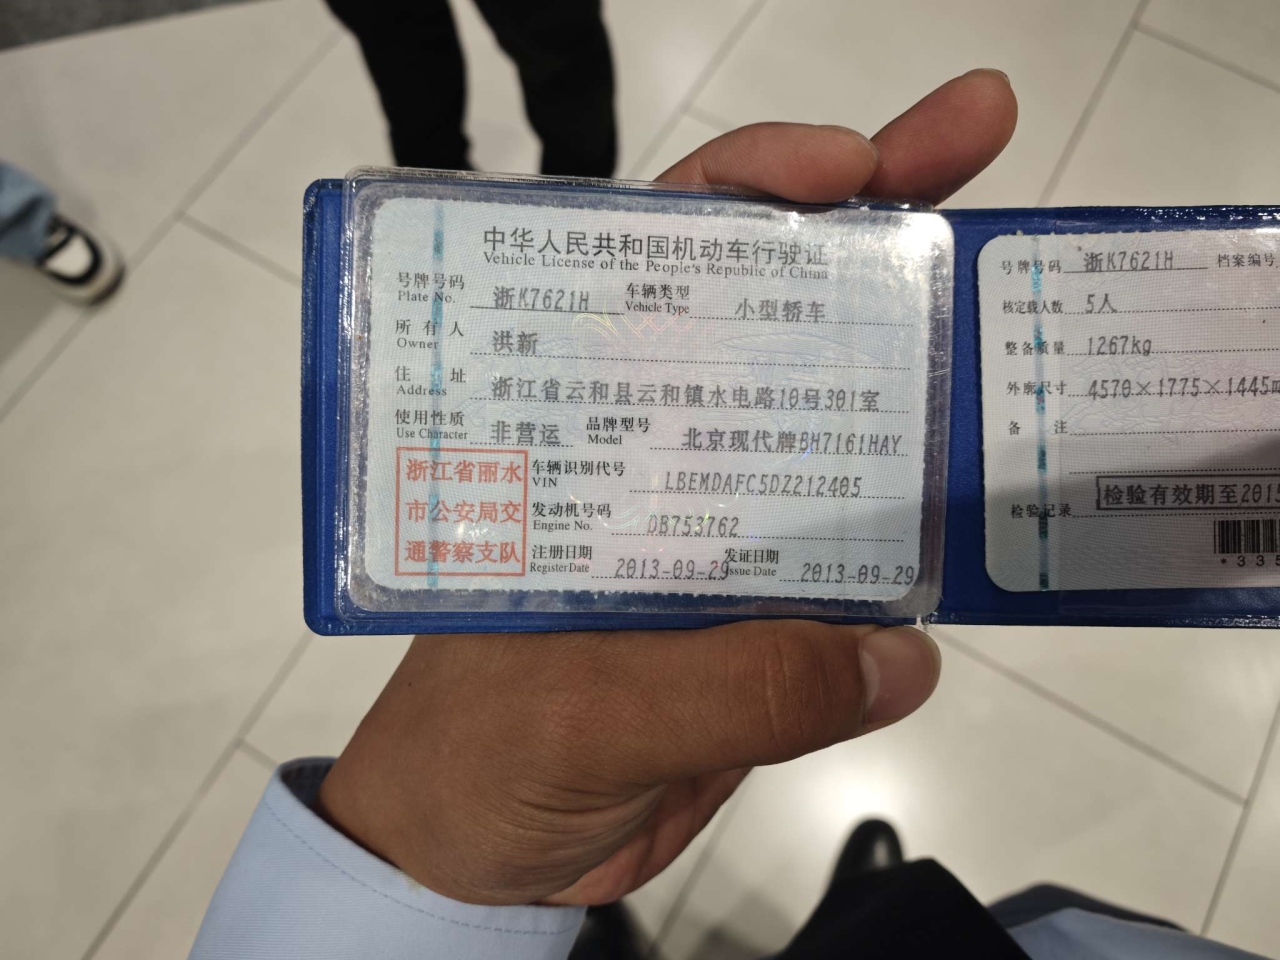 中华人民共和国机动车行驶证
Vehicle License of the People's Republic of China
号牌号码 浙K7621H 车辆类型 小型轿车
Plate No. Vehicle Type
所有人 洪新
Owner
住址 浙江省云和县云和镇水电路10号301室
Address
使用性质 非营运 品牌型号 北京现代牌BH7161HAY
Use Character Model
浙江省丽水
市公安局交
通警察支队
车辆识别代号 LBEMDAFC5DZ212405
VIN
发动机号码 DB753762
Engine No.
注册日期 2013-09-29 发证日期 2013-09-29
Register Date Issue Date
号牌号码 浙K7621H 档案编号
核定载人数 5人
整备质量 1267kg
外廓尺寸 4570×1775×1445m
备注
检验记录 检验有效期至2015
*335